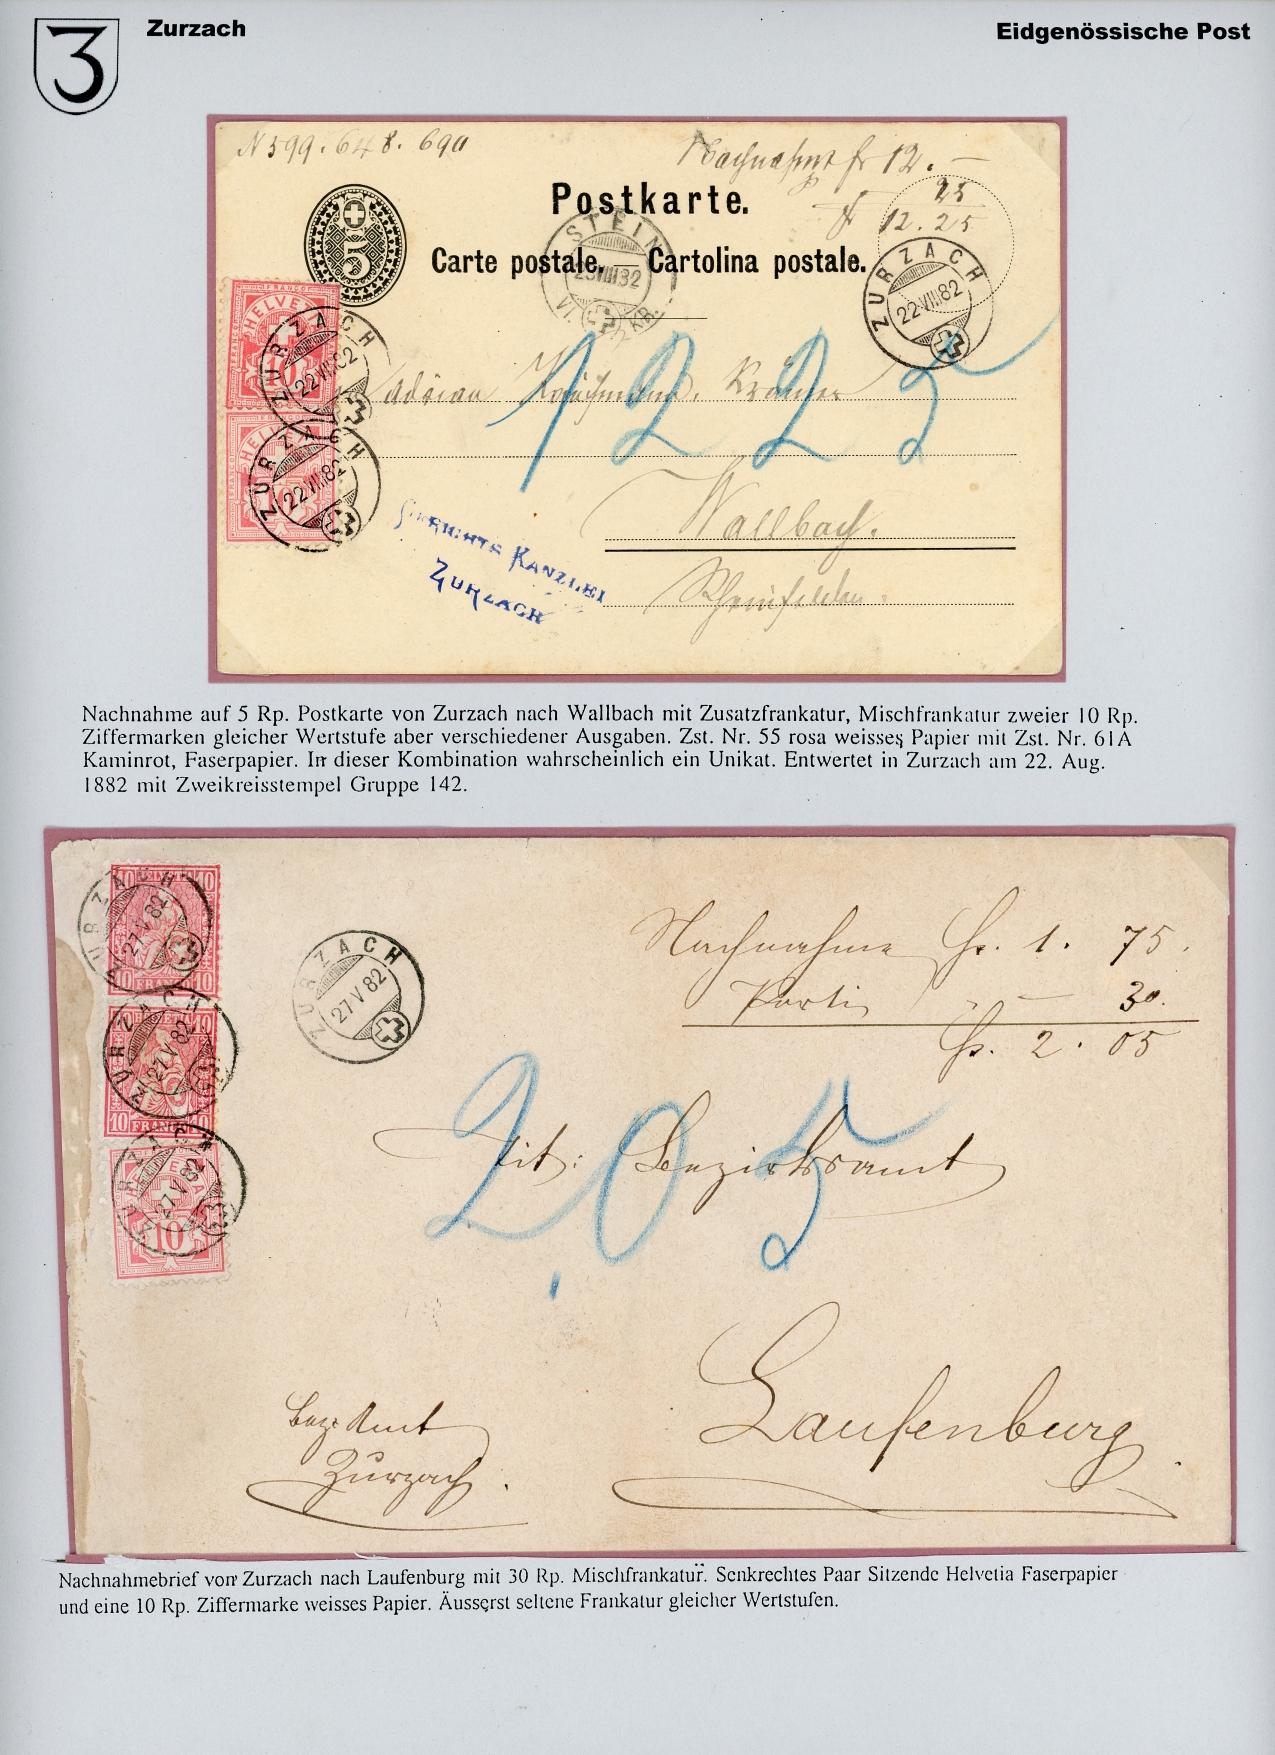 Zurzach
Eidgenössische Post
N 599. 648. 690
Nachnahme fr 12. —
25
fr 12. 25
Postkarte.
Carte postale. — Cartolina postale.
5
STEIN
23 VIII 82
ZURZACH
22 VIII 82
FRANCO
HELVETIA
10
ZURZACH
22 VIII 82
FRANCO
HELVETIA
10
ZURZACH
22 VIII 82
1225
Adrian
Wallbach.
Rheinfelden.
GERICHTS KANZLEI
ZURZACH
Nachnahme auf 5 Rp. Postkarte von Zurzach nach Wallbach mit Zusatzfrankatur, Mischfrankatur zweier 10 Rp.
Ziffermarken gleicher Wertstufe aber verschiedener Ausgaben. Zst. Nr. 55 rosa weisses Papier mit Zst. Nr. 61A
Kaminrot, Faserpapier. In dieser Kombination wahrscheinlich ein Unikat. Entwertet in Zurzach am 22. Aug.
1882 mit Zweikreisstempel Gruppe 142.
10 HELVETIA 10
10 FRANCO 10
ZURZACH
27 V 82
10 HELVETIA 10
10 FRANCO 10
ZURZACH
27 V 82
HELVETIA
10
ZURZACH
27 V 82
ZURZACH
27 V 82
Nachnahme Fr. 1. 75.
Porti „ — 30.
Fr. 2. 05
2.05
Tit: Bezirksamt
Laufenburg
Bez. Amt
Zurzach.
Nachnahmebrief von Zurzach nach Laufenburg mit 30 Rp. Mischfrankatur. Senkrechtes Paar Sitzende Helvetia Faserpapier
und eine 10 Rp. Ziffermarke weisses Papier. Äusserst seltene Frankatur gleicher Wertstufen.